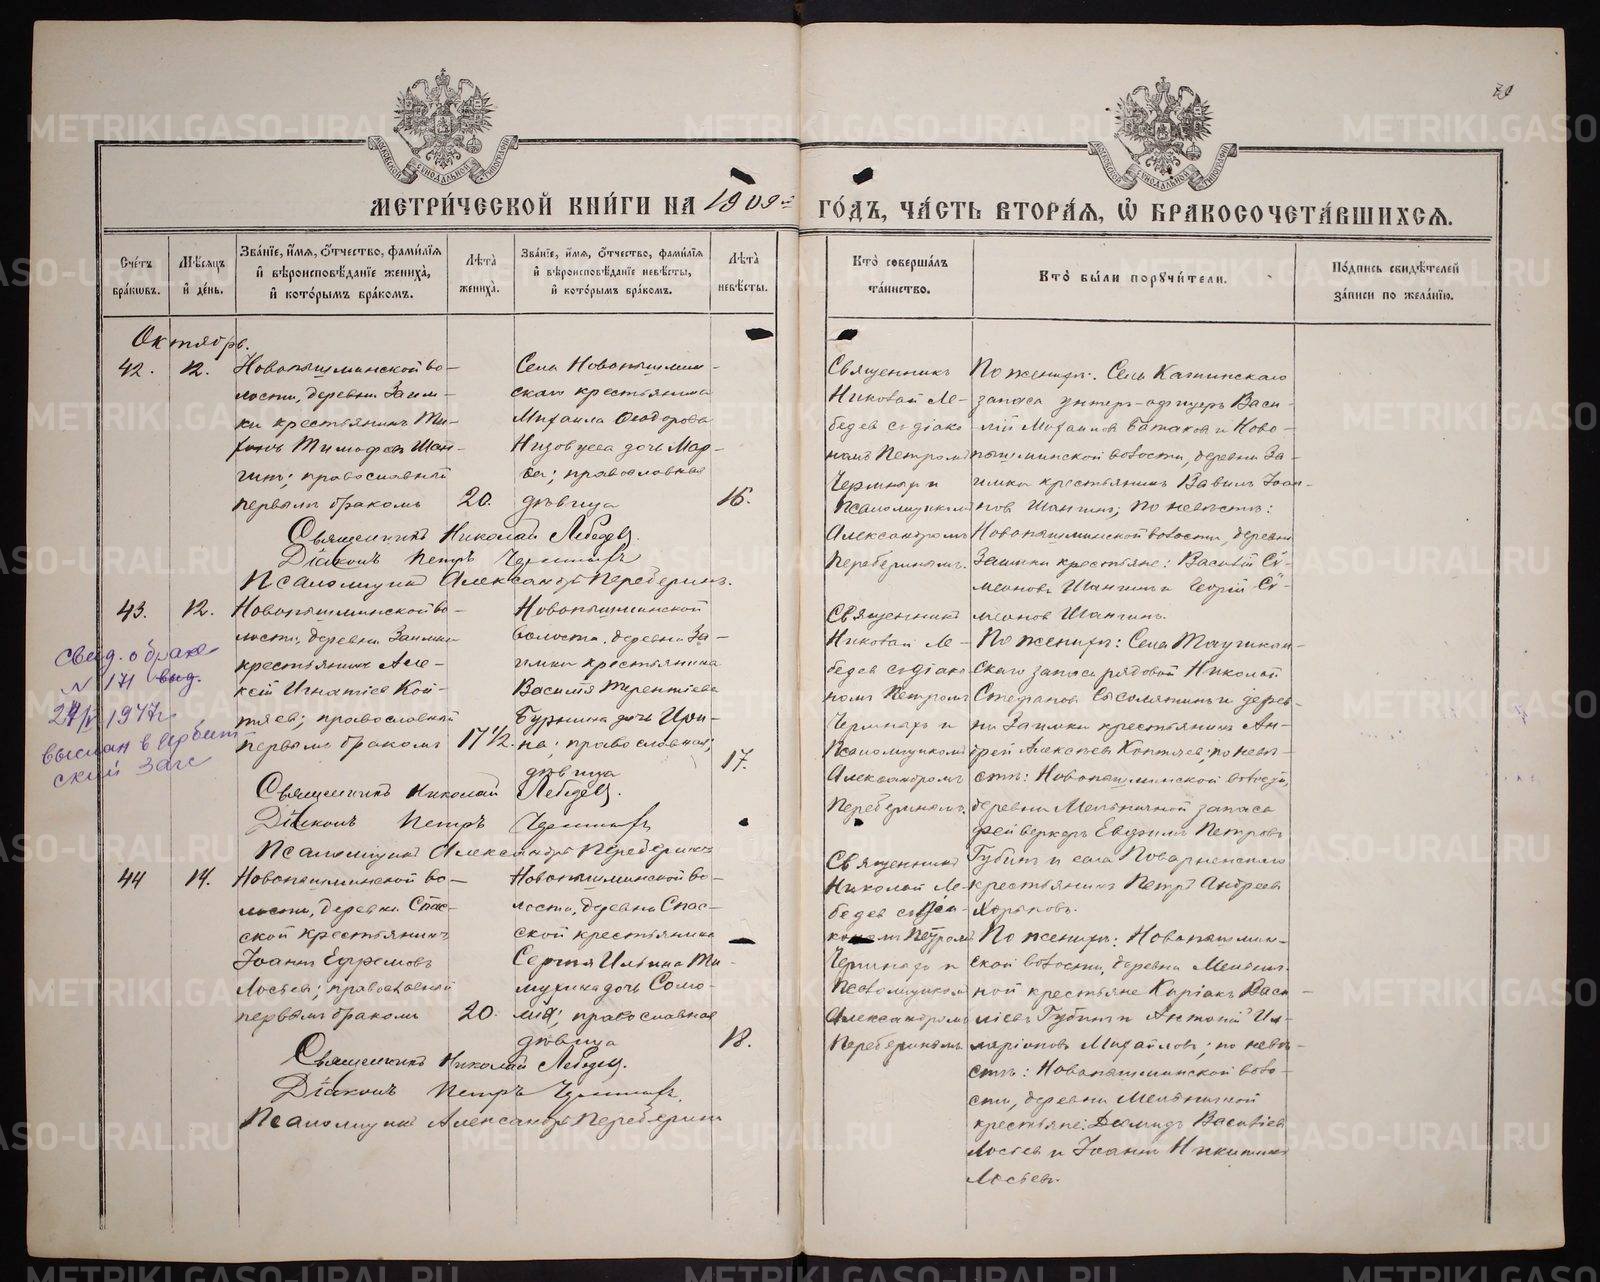 79
МЕТРИ́ЧЕСКОЙ КНИ́ГИ НА 1909й ГО́ДЪ, ЧА́СТЬ ВТОРА́Я, Ѡ҆ БРАКОСОЧЕТА́ВШИХСЯ.
Сче́тъ бра́кωвъ.
Мѣ́сяцъ и҆ де́нь.
Зва́нїе, и҆́мя, ѻ҆́тчество, фами́лїя и҆ вѣроисповѣ́данїе жениха̀, и҆ кото́рымъ бра́комъ.
Лѣ́та жениха̀.
Зва́нїе, и҆́мя, ѻ҆́тчество, фами́лїя и҆ вѣроисповѣ́данїе невѣ́сты, и҆ кото́рымъ бра́комъ.
Лѣ́та невѣ́сты.
Кто̀ соверша́лъ та́инство.
Кто̀ бы́ли порꙋчи́тели.
По́дпись свидѣ́телей за́писи по жела́нїю.
Октябрь.
42.
12.
Новопышминской во-
лости, деревни Заим-
ки крестьянинъ Ти-
хонъ Тимофеевъ Шан-
гинъ; православный
первымъ бракомъ
20.
Села Новопышмин-
скаго крестьянина
Михаила Ѳеодорова
дочь Мар-
ѳа; православная
дѣвица
16.
Священникъ
Николай Ле-
бедев съ діако
номъ Петромъ
и
Псаломщикомъ
Александромъ
Переберинымъ.
По женихѣ: Села Кашинскаго
запаса унтеръ-офицеръ Васи-
лій Михаиловъ и Ново-
пышминской волости, деревни За-
имки крестьянинъ Вавилъ Іоан-
новъ Шангинъ; по невѣстѣ:
Новопышминской волости, деревни
Заимки крестьяне: Василій Сѵ-
меоновъ Шангинъ и Георгій Сѵ-
меоновъ Шангинъ.
Священникъ Николай Лебедевъ.
Діаконъ Петръ
Псаломщикъ Александръ Переберинъ.
43.
12.
Новопышминской во-
лости, деревни Заимки
крестьянинъ Але-
ксій Игнатіев Кой-
тяев; православный
первымъ бракомъ
17½.
Новопышминской
волости, деревни За-
имки крестьянина
Василія Терентіева
Бурнина дочь Ири-
на; православная;
дѣвица
17.
Священникъ
Николай Ле-
бедев съ діако
номъ Петромъ
и
Псаломщикомъ
Александромъ
Переберинымъ.
По женихѣ: Села
скаго запаса рядовой Николай
Стефановъ и дерев-
ни Заимки крестьянинъ Ан-
дрей Алексѣевъ Коптяев; по невѣ-
стѣ: Новопышминской волости,
деревни Мельничной запаса
фейверкеръ Евфимъ Петровъ
Губинъ и села Поварненскаго
крестьянинъ Петръ Андреевъ
Хорьковъ.
свид. о браке
N 171 выд.
1977г
выслан в Ирбит-
ский Загс
Священникъ Николай Лебедевъ.
Діаконъ Петръ
Псаломщикъ Александръ Переберинъ
44
14.
Новопышминской во-
лости, деревни Спас-
ской крестьянинъ
Іоаннъ Ефремовъ
Лосьевъ; православный
первымъ бракомъ
20.
Новопышминской во-
лости, деревни Спас-
ской крестьянина
Сергія Ильина Ти-
мухина дочь Соло-
мія; православная
дѣвица
18.
Священникъ
Николай Ле-
бедев съ Діа-
кономъ Петромъ
и
Псаломщикомъ
Александромъ
Переберинымъ
По женихѣ: Новопышмин-
ской волости, деревни Мельнич-
ной крестьяне Киріакъ Васи-
ліевъ Губинъ и Антоній Ил-
ларіоновъ Михайловъ; по невѣ-
стѣ: Новопышминской воло-
сти, деревни Мельничной
крестьяне: Демидъ Василіевъ
Лосьевъ и Іоаннъ Никитинъ
Лосьевъ.
Священникъ Николай Лебедевъ.
Діаконъ Петръ
Псаломщикъ Александръ Переберинъ
METRIKI.GASO-URAL.RU